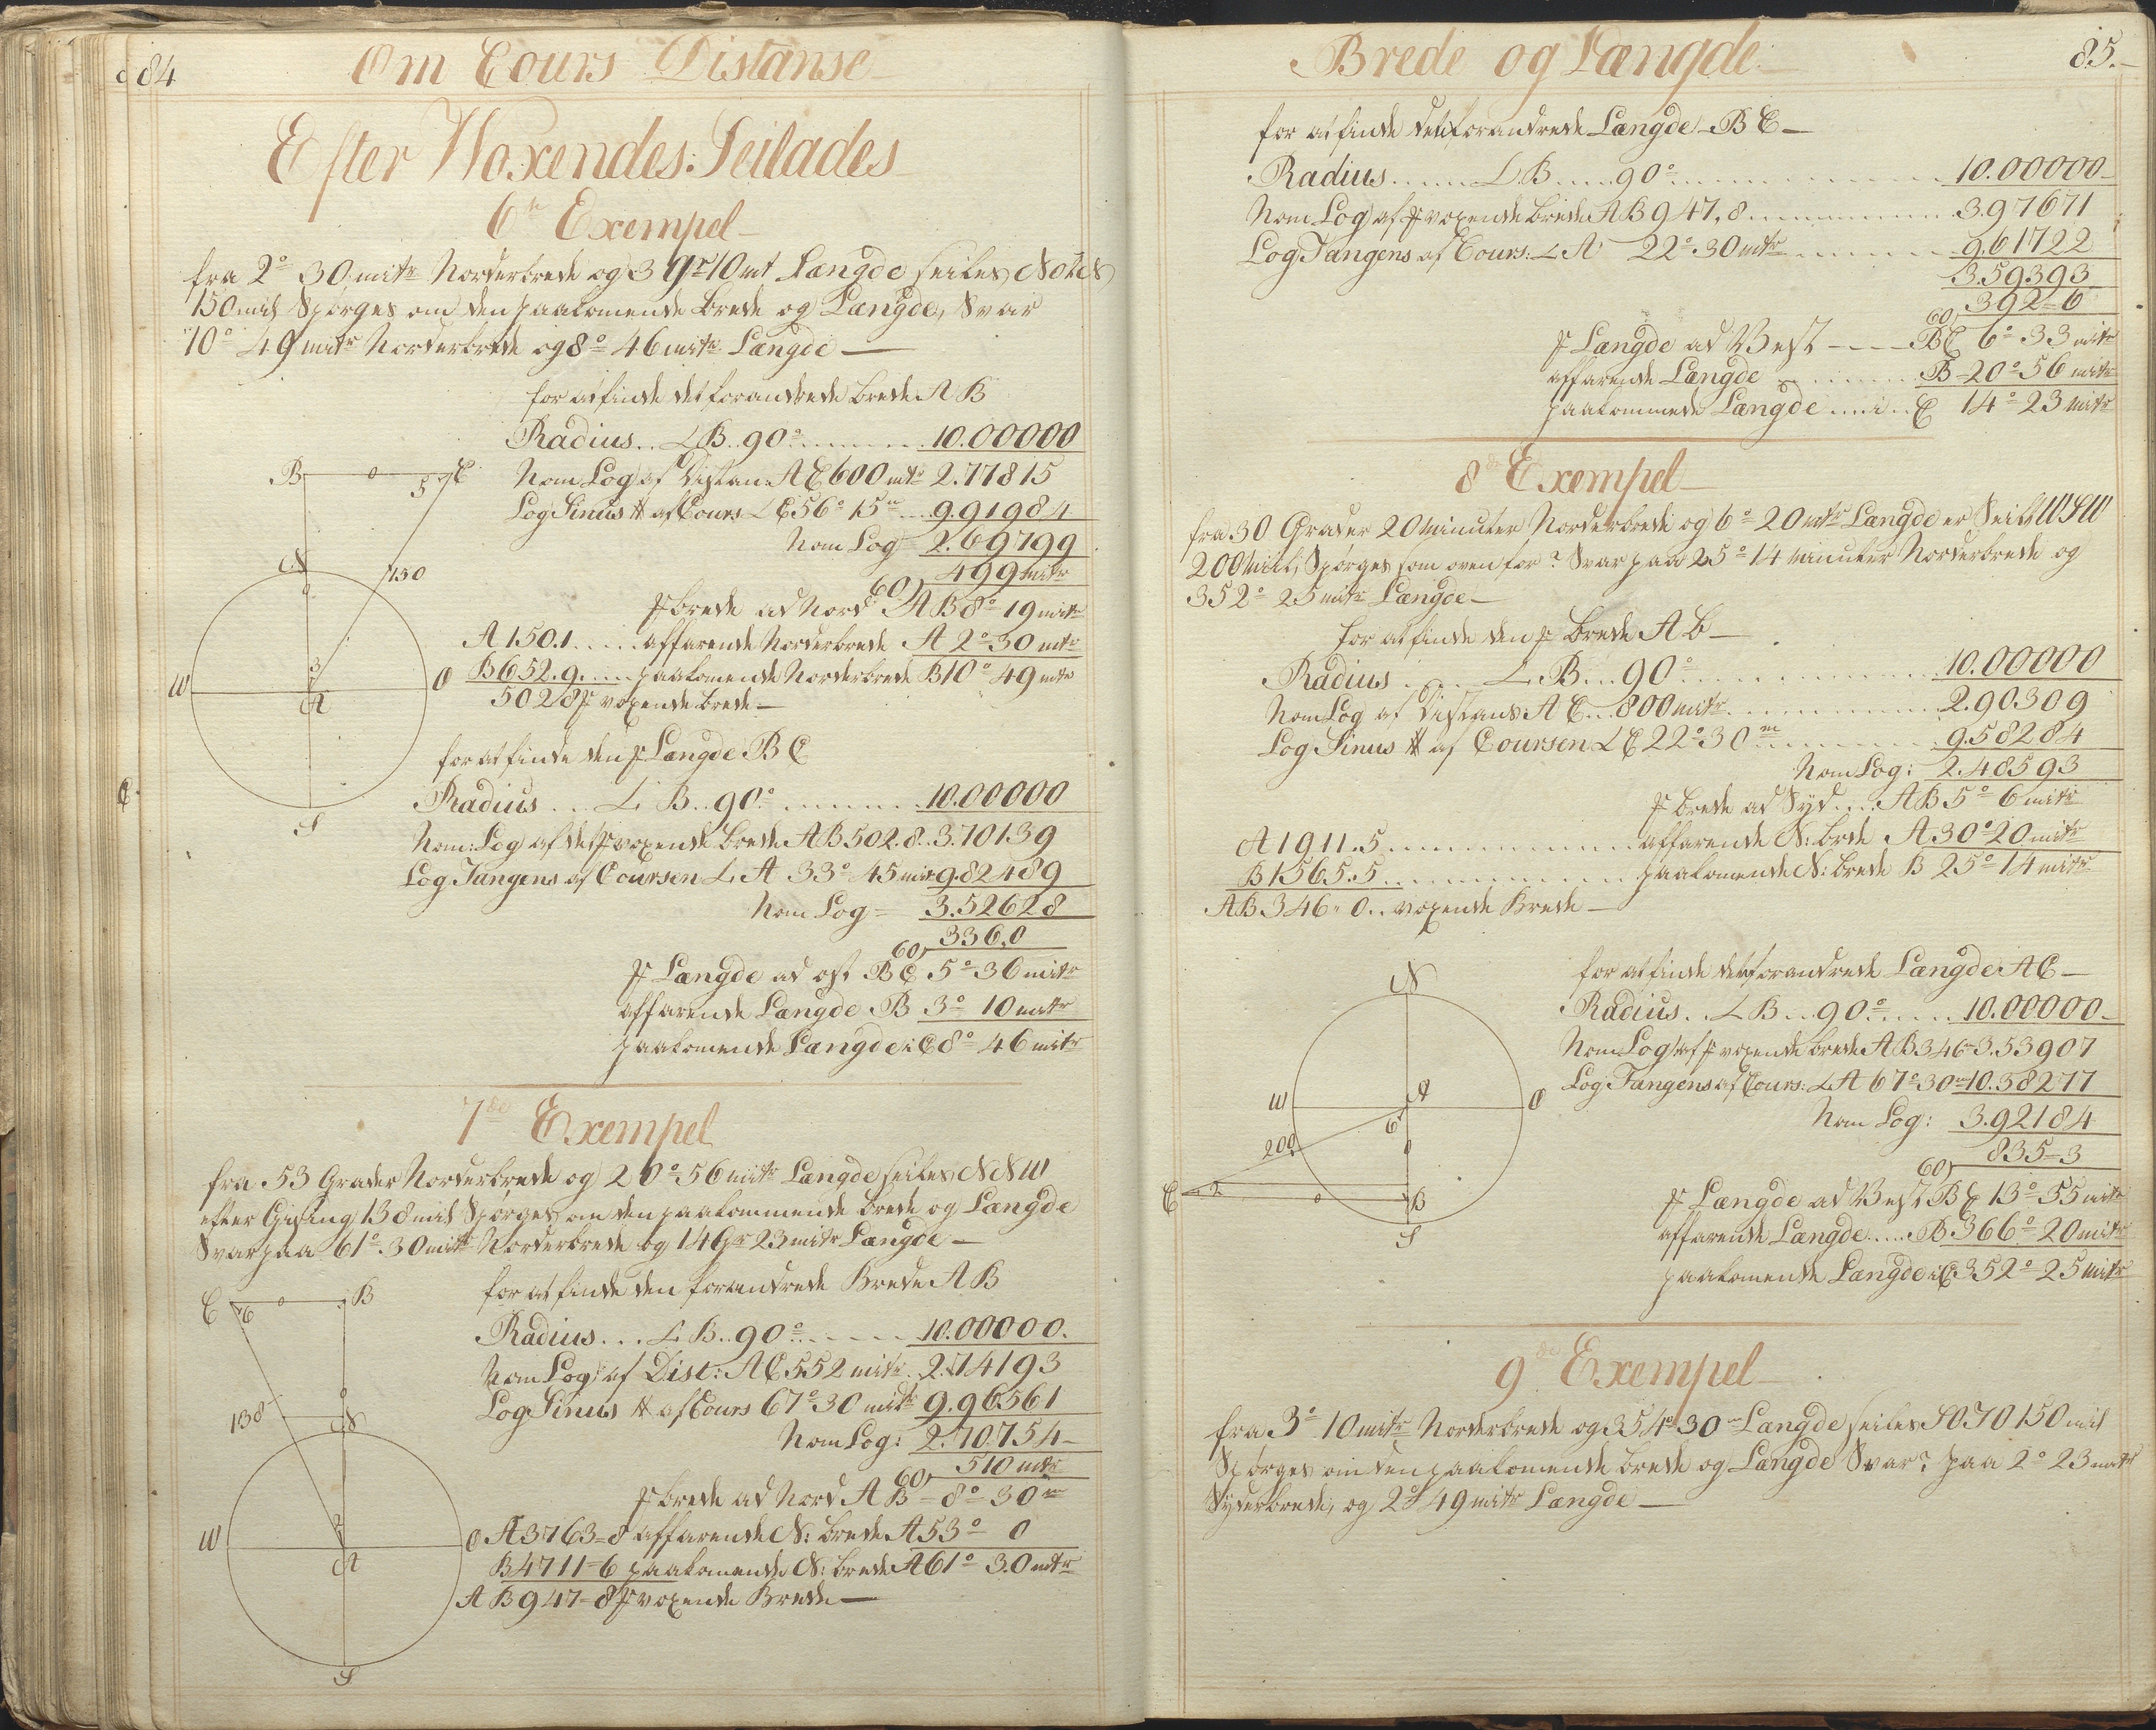 84
Om Cours Distanse
Efter Woxendes: Seilades
6te Exempel
fra 2° 30 mitr Norderbrede og 3 gr 10 mt Længde seiles NOtN
150 mil Spørges om den paakomende brede og Længde, Svar
10° 49 mitr Norderbrede og 8° 46 mitr Længde
for at finde det forandrede brede AB
Radius .. ∠ B .. 90° 10.00000
Nom Log af Distan: A C 600 mtr 2.77815
Log Sinus af Cours ∠ C 56° 15m 9.91984
Nom Log 2.69799
60) 499 mitr
brede ad Nord AB 8° 19 mitr
A 150.1 ..... affarende Norderbrede A 2° 30 mtr
B 652.9 ..... paakomende Norderbrede B 10° 49 mtr
502,8 voxende brede
for at finde den Længde B C
Radius ... ∠ B .. 90° 10.00000
Nom: Log af voxende brede AB 502.8 .. 3.70139
Log Tangens af Coursen ∠ A 33° 45 mi 9.82489
Nom Log = 3.52628
60) 336,0
Længde ad ost B C 5° 36 mitr
affarende Længde B 3° 10 mitr
paakomende Længde i C 8° 46 mitr
B o 5 C
N
150
3
W A O
S
7de Exempel
fra 53 Grader Norderbrede og 20° 56 mitr Længde seiles NNW
efter Gising 138 mil Spørges om den paakommende brede og Længde
Svar paa 61° 30 mitr Norderbrede og 14 Gr 23 mitr Længde
for at finde den forandrede Brede AB
Radius ... ∠ B .. 90° 10.00000.
Nom Log: af Dist: A C 552 mitr 2.74193
Log Sinus af Cours 67° 30 mitr 9.96561
Nom Log: 2.70754
60) 510 mtr
brede ad Nord AB = 8° 30m
A 3763=8 affarende N: brede A 53° 0
B 4711=6 paakomende N: brede A 61° 30 mtr
AB 947=8 voxende Brede
C 6 o B
138
N
2
W A O
S
Brede og Længde
85.
for at finde det forandrede Længde B C
Radius ...... ∠ B .... 90° 10.00000
Nom Log af voxende brede AB 947,8 3.97671
Log Tangens af Cours: ∠ A 22° 30 mtr 9.61722
3.59393
60) 392=6
Længde ad West B C 6° 33 mitr
affarende Længde B 20° 56 mitr
paakommede Længde i C 14° 23 mitr
8de Exempel
fra 30 Grader 20 Minuter Norderbrede og 6° 20 mtr Længde er Seilt WSW
200 Mil, Spørges som ovenfor? Svar paa 25° 14 minuter Norderbrede og
352° 25 mitr Længde
for at finde den brede A b
Radius ..... ∠ B ... 90° 10.00000
Nom Log af Distans A C ... 800 mitr 2.90309
Log Sinus af Coursen ∠ C 22° 30m 9.58284
Nom Log: 2.48593
brede ad Syd .... AB 5° 6 mitr
A 1911.5 ..... affarende N: brde A 30° 20 mitr
B 1565.5 ..... paakomende N: brede B 25° 14 mitr
AB 346=0 .. voxende Brede
for at finde det forandrede Længde A C
Radius .. ∠ B ... 90° 10.00000
Nom Log af voxende brede AB 346=3.53907
Log Tangens af Cours: ∠ A 67° 30m 10.38277
Nom Log: 3.92184
60) 835=3
Længde ad West B C 13° 55 mitr
affarende Længde ..... B 366° 20 mitr
paakomende Længde i C 352° 25 mitr
N
W A O
6
200
C 2 o B
S
9de Exempel
fra 3° 10 mitr Norderbrede og 354° 30m Længde seiles SOTO 150 mil
Spørges om den paakomende brede og Længde Svar? paa 2° 23 mitr
Syderbrede, og 2° 49 mitr Længde